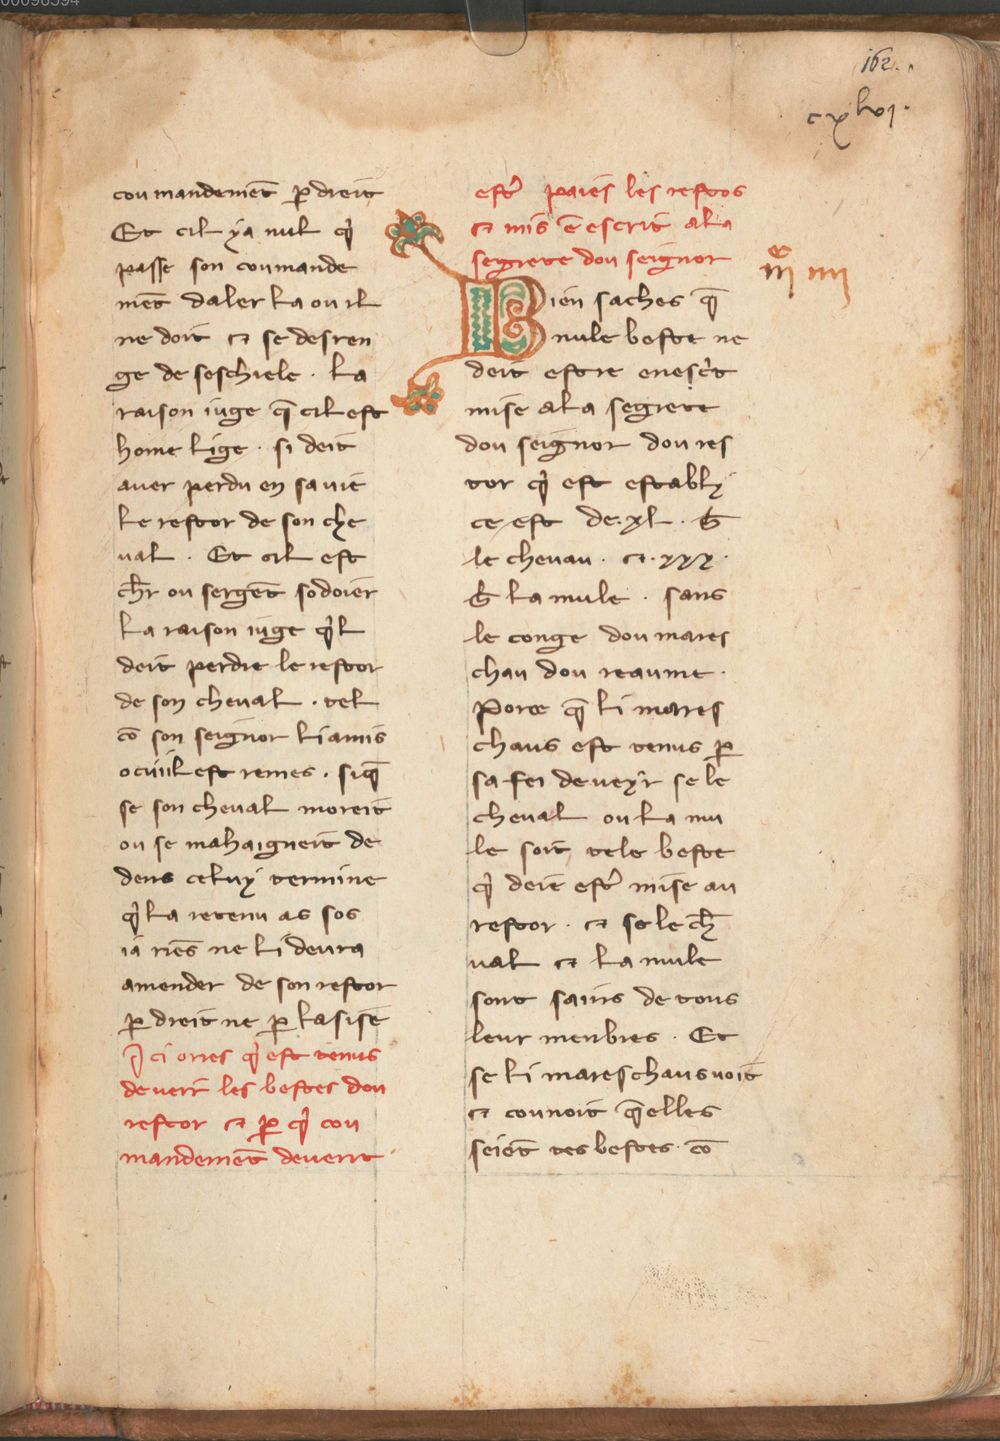 162.
cxlvi.
coumandemẽt ꝑ dreit
Et cil ya nul q̉
passe son coumande
mẽt daler la ou il
ne doit ⁊ se desren
ge de seschiele . La
raison iuge q̃ cil est
home lige . si deit
auer perdu en sa vie
le restor de son che
ual . Et cil est
ch̅r ou sergẽt sodoier
La raison iuge q̉l
deit perdre le restor
de son cheual . tel
cõ son seignor li amis
est remes . siq̃
se son cheual moreit
ou se mahaigneit de
dens celuy termine
q̉ la retenu as sos
ia riẽs ne li deura
amender de son restor
ꝑ dreit ne ꝑ lasisẽ
I ci orres q̉ est tenus
de ueir les bestes dou
restor ⁊ ꝑ q̉ cou
mandemẽt deuent
estr̉ paies les restos
⁊ mis ẽ escrit a la
segrete dou seignor
mͤ iiii
Bien saches q̃
nule beste ne
deit estre enesc̉t
mise a la segrete
dou seignor dou res
tor q̉ est establi
ce est de .xl . ƀ
le cheuau . ⁊ .xxx .
ƀ la mule . sans
le conge dou mares
chau dou reaume .
Porce q̃ li mares
chaus est tenus ꝑ
sa fei de veyr se le
cheual ou la mu
le soit tele beste
q̉ deiẽ estr̉ mise au
restor . ⁊ se le ch̅
ual ⁊ la mule
sont sains de tous
leur menbres . Et
se li mareschaus voit
⁊ counoit q̃ elles
seiẽt tes bestes . cõ